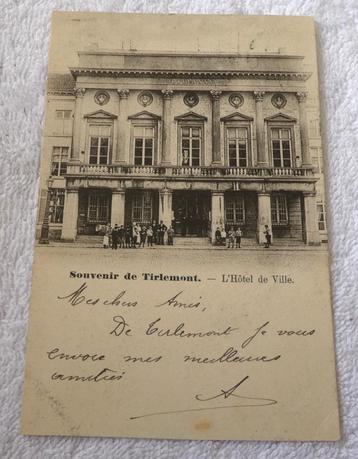 Souvenir de Tirlemont. — L'Hôtel de Ville.
Mes chers Amis,
De Tirlemont je vous
envoie mes meilleures
amitiés
A